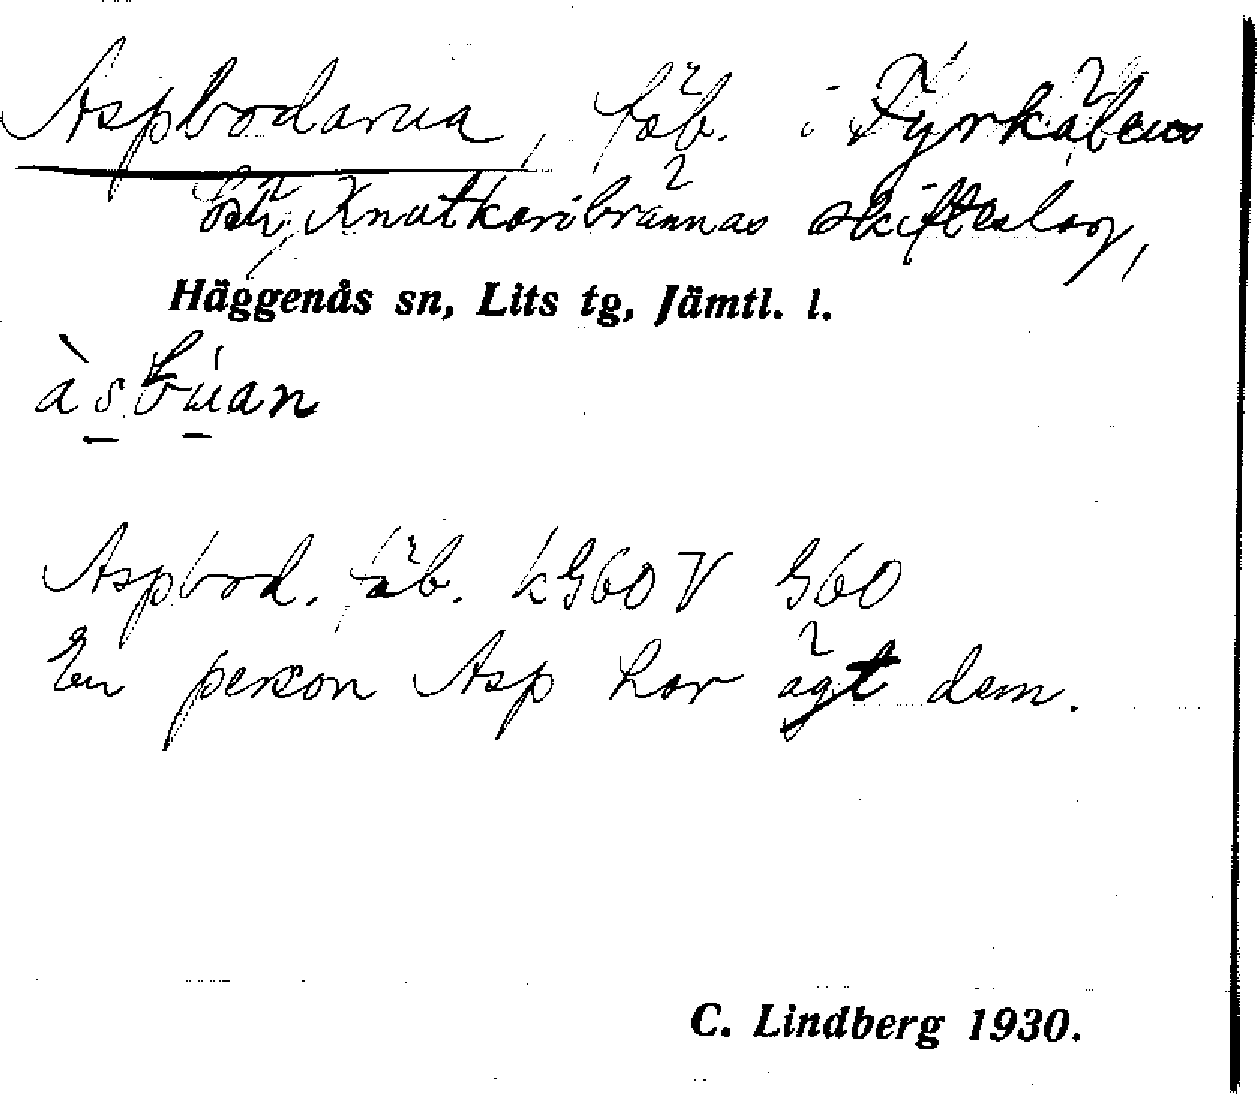 Aspbodarna, fäb. i Fyrkäbens
och Knutkaribrännas skifteslag,
Häggenås sn, Lits tg, Jämtl. l.
àsbúan
Aspbod. fäb. kG60V G60
En person Asp har ägt dem.
C. Lindberg 1930.